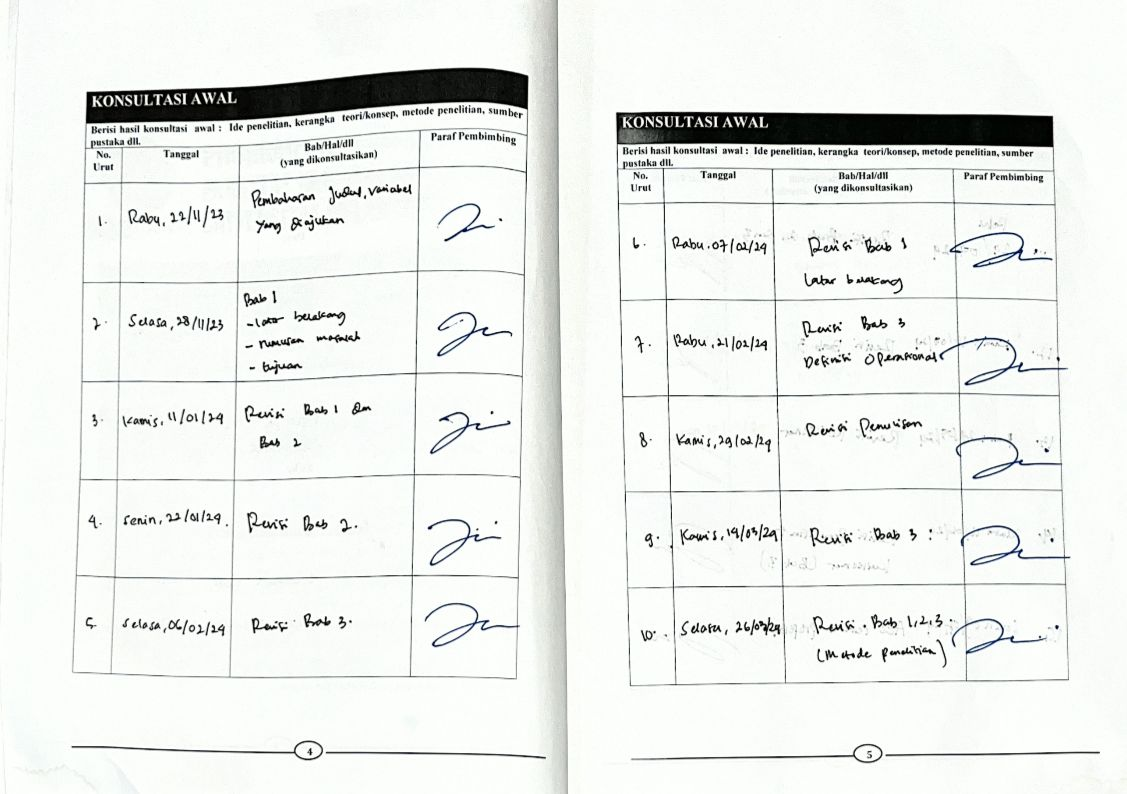 KONSULTASI AWAL
Berisi hasil konsultasi awal : Ide penelitian, kerangka teori/konsep, metode penelitian, sumber
pustaka dll.
No. Urut
Tanggal
Bab/Hal/dll
(yang dikonsultasikan)
Paraf Pembimbing
1.
Rabu, 22/11/23
Pembaharan Judul, Variabel
Yang diajukan
2.
Selasa, 28/11/23
Bab 1
- latar belakang
- rumusan masalah
- tujuan
3.
Kamis, 11/01/24
Revisi Bab 1 dan
Bab 2
4.
Senin, 22/01/24.
Revisi Bab 2.
5.
Selasa, 06/02/24
Revisi Bab 3.
4
KONSULTASI AWAL
Berisi hasil konsultasi awal : Ide penelitian, kerangka teori/konsep, metode penelitian, sumber
pustaka dll.
No. Urut
Tanggal
Bab/Hal/dll
(yang dikonsultasikan)
Paraf Pembimbing
6.
Rabu, 07/02/24
Revisi Bab 1
Latar belakang
7.
Rabu, 21/02/24
Revisi Bab 3
Definisi Operasional
8.
Kamis, 29/02/24
Revisi Penulisan
9.
Kamis, 14/03/24
Revisi Bab 3 :
10.
Selasa, 26/03/24
Revisi. Bab 1, 2, 3.
(Metode penelitian)
5